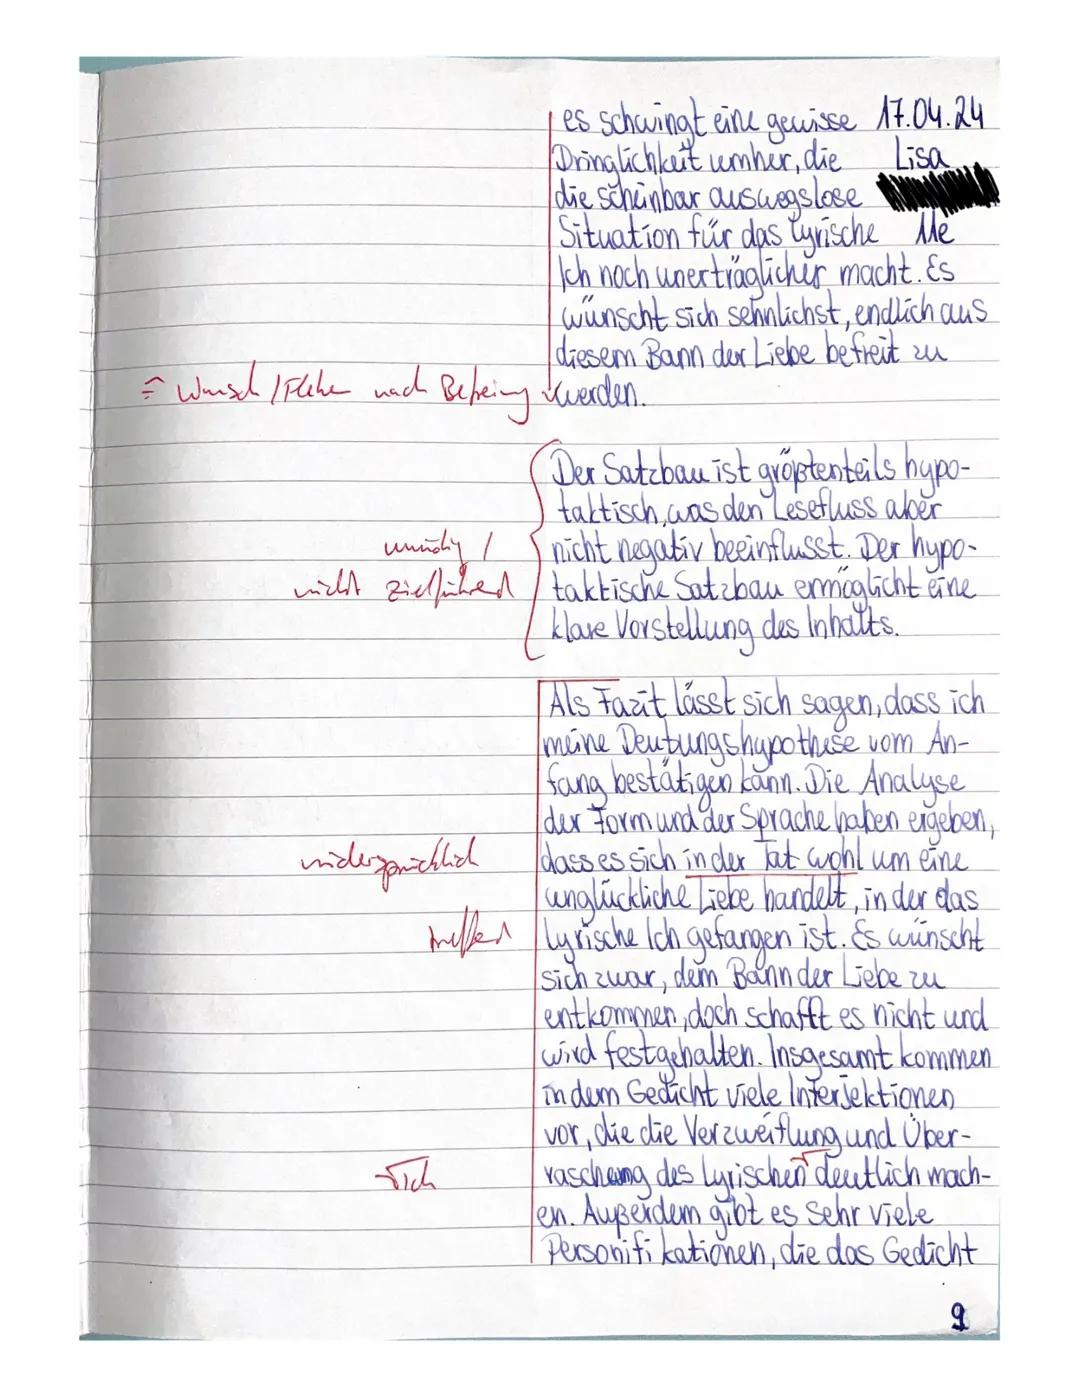 es schwingt eine gewisse 17.04.24
Dringlichkeit umher, die Lisa
die scheinbar auswegslose
Situation für das lyrische Me
Ich noch unerträglicher macht. Es
wünscht sich sehnlichst, endlich aus
diesem Bann der Liebe befreit zu
≙ Wunsch / Flehen nach Befreiung werden.
Der Satzbau ist größtenteils hypo-
taktisch, was den Lesefluss aber
nicht negativ beeinflusst. Der hypo-
unnötig /
taktische Satzbau ermöglicht eine
nicht zielführend
klare Vorstellung des Inhalts.
Als Fazit lässt sich sagen, dass ich
meine Deutungshypothese vom An-
fang bestätigen kann. Die Analyse
der Form und der Sprache haben ergeben,
widersprüchlich dass es sich in der Tat wohl um eine
unglückliche Liebe handelt, in der das
treffend lyrische Ich gefangen ist. Es wünscht
sich zwar, dem Bann der Liebe zu
entkommen, doch schafft es nicht und
wird festgehalten. Insgesamt kommen
in dem Gedicht viele Interjektionen
vor, die die Verzweiflung und Über-
√Ich raschung des lyrischen √ deutlich mach-
en. Außerdem gibt es sehr viele
Personifikationen, die das Gedicht
9